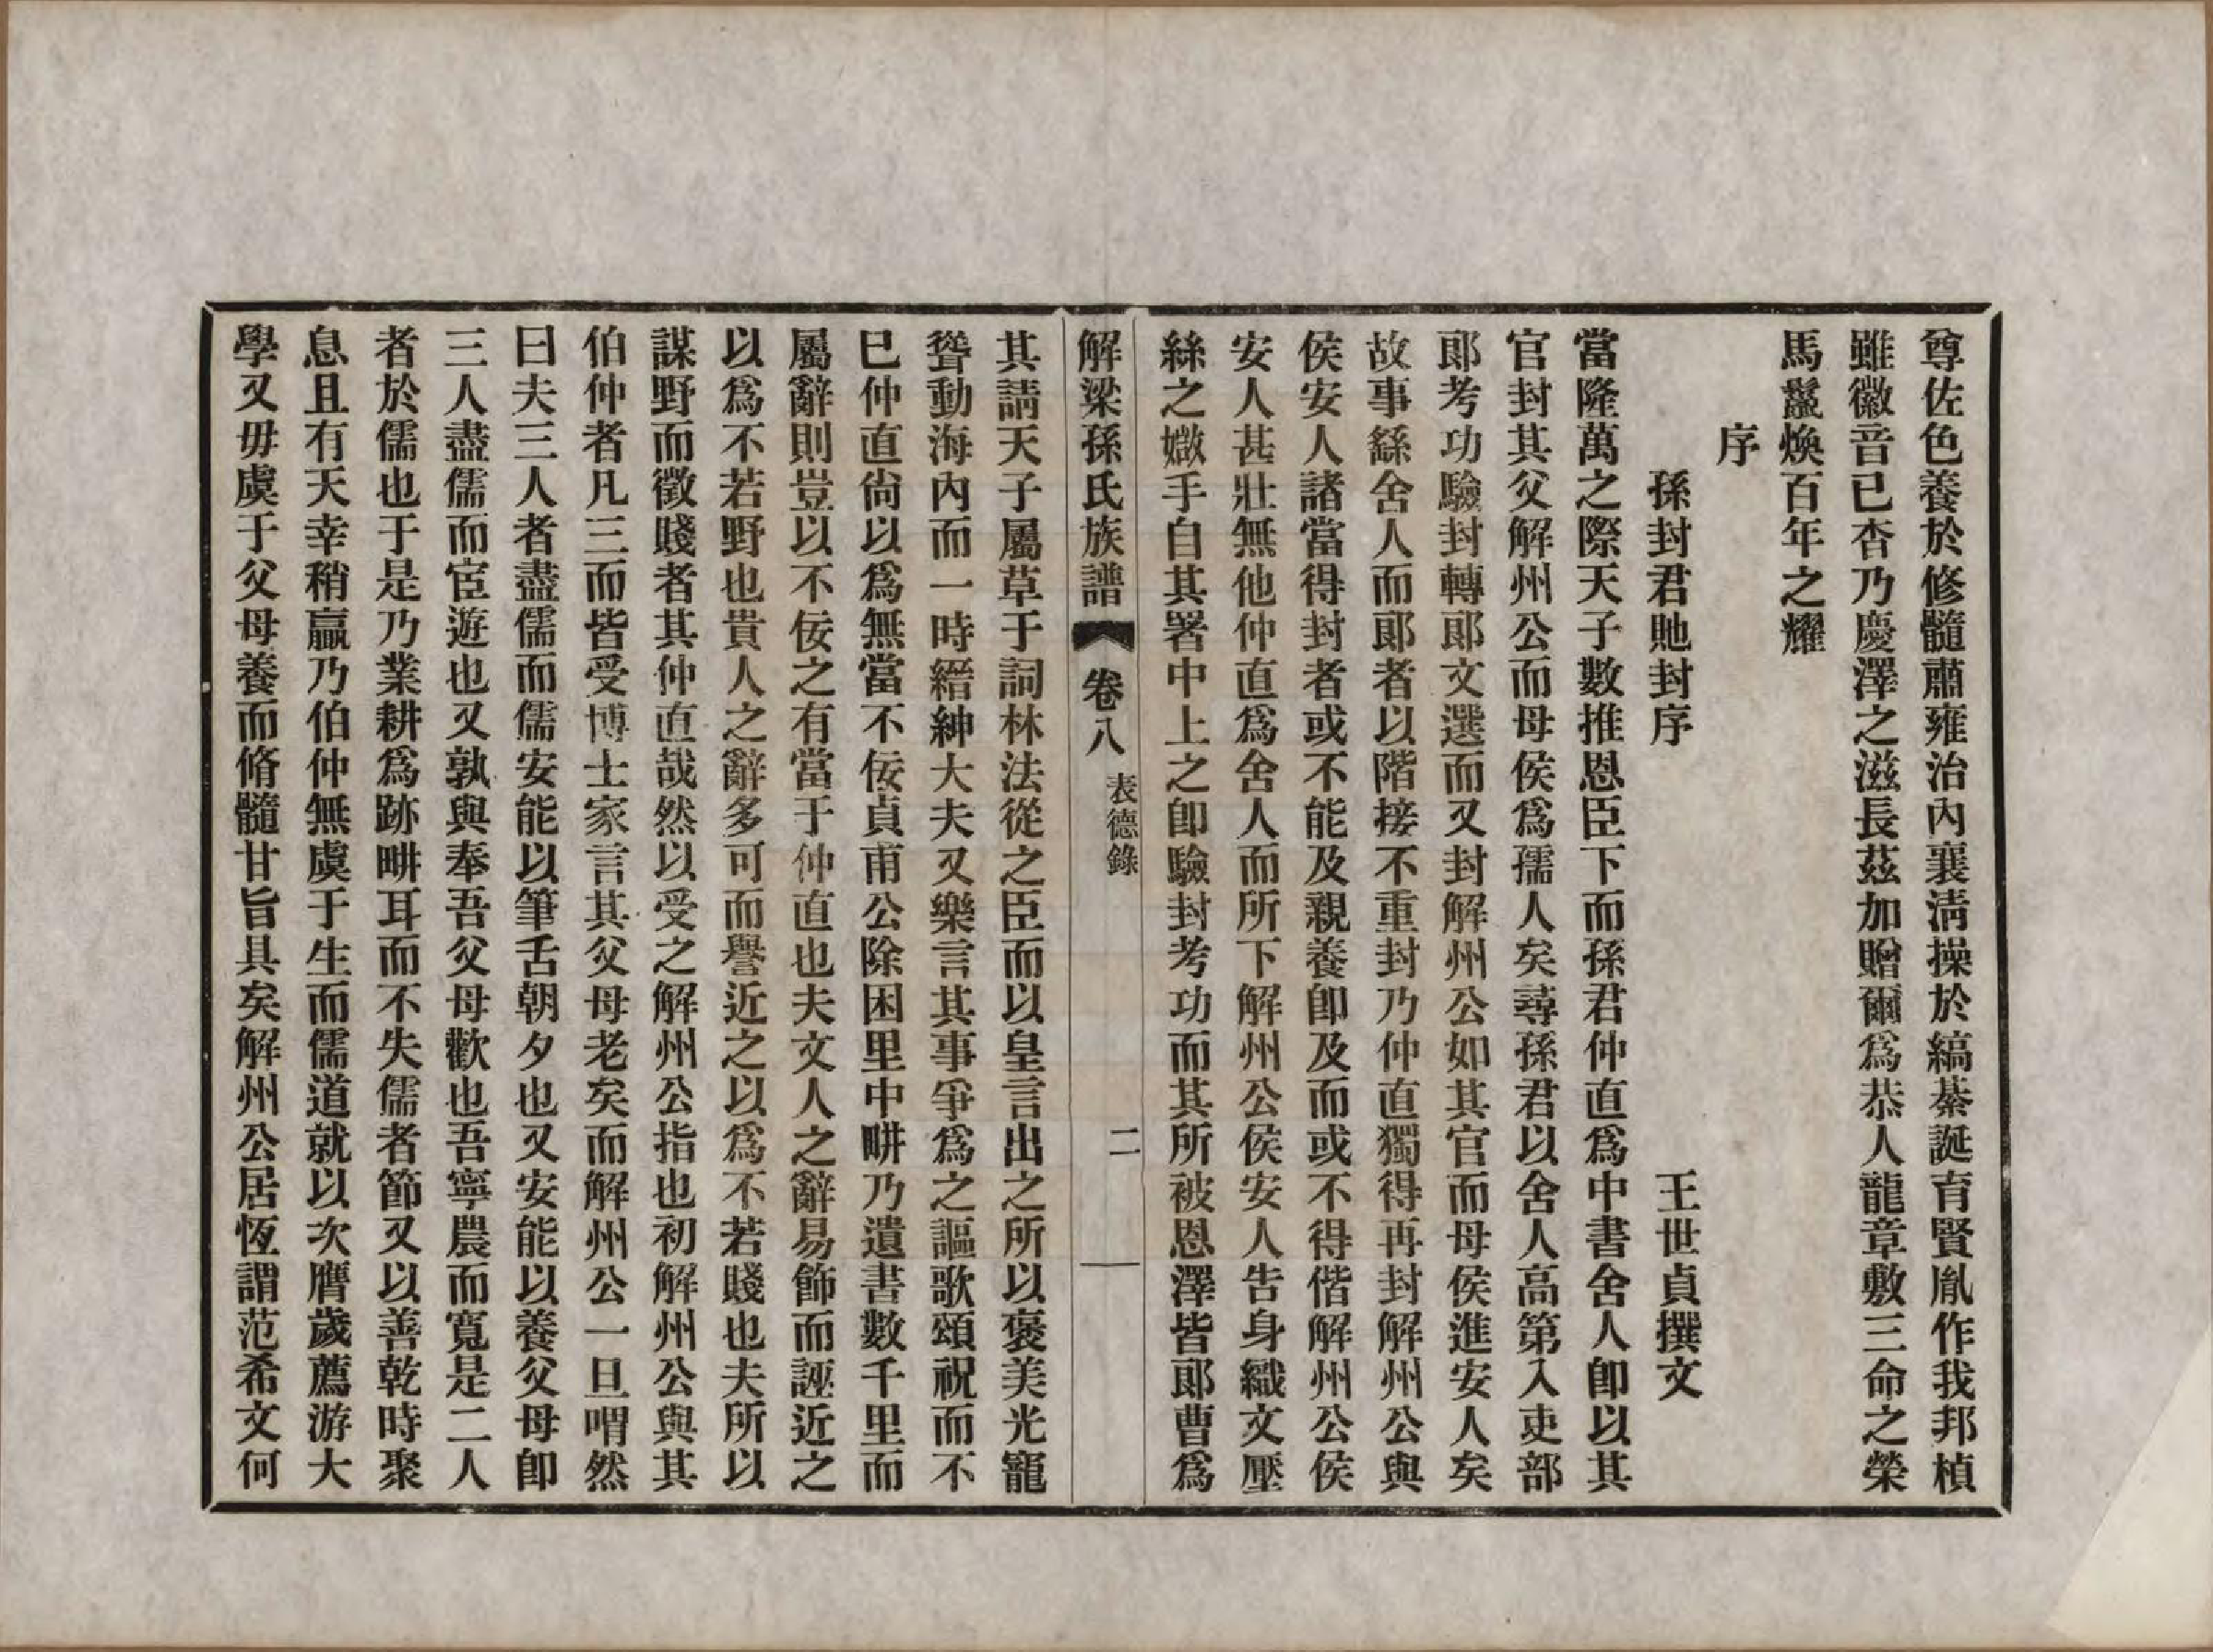 尊佐色養於修髓肅雍治內襄淸操於縞綦誕育賢胤作我邦楨
雖徽音已杳乃慶澤之滋長茲加贈爾爲恭人龍章敷三命之榮
馬鬣煥百年之耀
序
孫封君貤封序 王世貞撰文
當隆萬之際天子數推恩臣下而孫君仲直爲中書舍人卽以其
官封其父解州公而母侯爲孺人矣尋孫君以舍人高第入吏部
郞考功驗封轉郞文選而又封解州公如其官而母侯進安人矣
故事繇舍人而郞者以階接不重封乃仲直獨得再封解州公與
侯安人諸當得封者或不能及親養卽及而或不得偕解州公侯
安人甚壯無他仲直爲舍人而所下解州公侯安人告身織文壓
絲之媺手自其署中上之卽驗封考功而其所被恩澤皆郞曹爲
解梁孫氏族譜 卷八 表德錄 二
其請天子屬草于詞林法從之臣而以皇言出之所以褒美光寵
聳動海內而一時縉紳大夫又樂言其事爭爲之謳歌頌祝而不
已仲直尙以爲無當不佞貞甫公除困里中畊乃遺書數千里而
屬辭則豈以不佞之有當于仲直也夫文人之辭易飾而誣近之
以爲不若野也貴人之辭多可而譽近之以爲不若賤也夫所以
謀野而徵賤者其仲直哉然以受之解州公指也初解州公與其
伯仲者凡三而皆受博士家言其父母老矣而解州公一旦喟然
曰夫三人者盡儒而儒安能以筆舌朝夕也又安能以養父母卽
三人盡儒而宦遊也又孰與奉吾父母歡也吾寧農而寬是二人
者於儒也于是乃業耕爲跡畊耳而不失儒者節又以善乾時聚
息且有天幸稍贏乃伯仲無虞于生而儒道就以次膺歲薦游大
學又毋虞于父母養而脩髓甘旨具矣解州公居恆謂范希文何